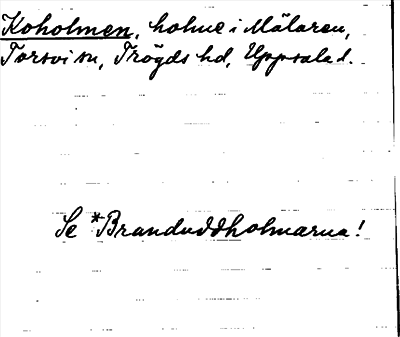 Koholmen, holme i Mälaren,
Torsvi sn, Trögds hd, Uppsala l.
Se *Branduddholmarna!